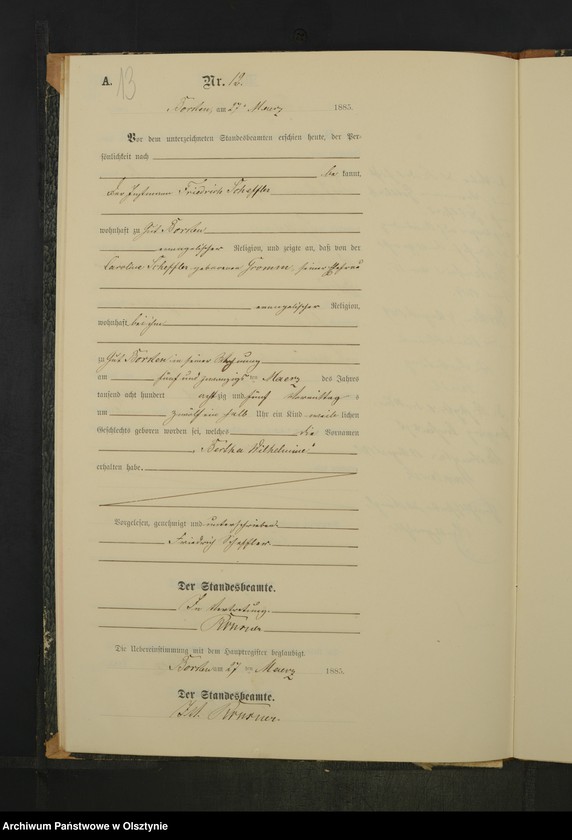 A. 13 Nr. 13.
Borken, am 27ten Maerz 1885.
Vor dem unterzeichneten Standesbeamten erschien heute, der Per-
sönlichkeit nach
be kannt,
der Instmann Friedrich Scheffler
wohnhaft zu Gut Borken
evangelischer Religion, und zeigte an, daß von der
Caroline Scheffler geborenen Gromm, seiner Ehefrau
evangelischer Religion,
wohnhaft bei ihm
zu Gut Borken in seiner Wohnung
am fünf und zwanzigsten Maerz des Jahres
tausend acht hundert achtzig und fünf Vormittags
um zwölf ein halb Uhr ein Kind weib lichen
Geschlechts geboren worden sei, welches die Vornamen
Bertha Wilhelmine
erhalten habe.
Vorgelesen, genehmigt und unterschrieben
Friedrich Scheffler
Der Standesbeamte.
In Vertretung.
Die Uebereinstimmung mit dem Hauptregister beglaubigt.
Borken am 27ten Maerz 1885.
Der Standesbeamte.
Archiwum Państwowe w Olsztynie